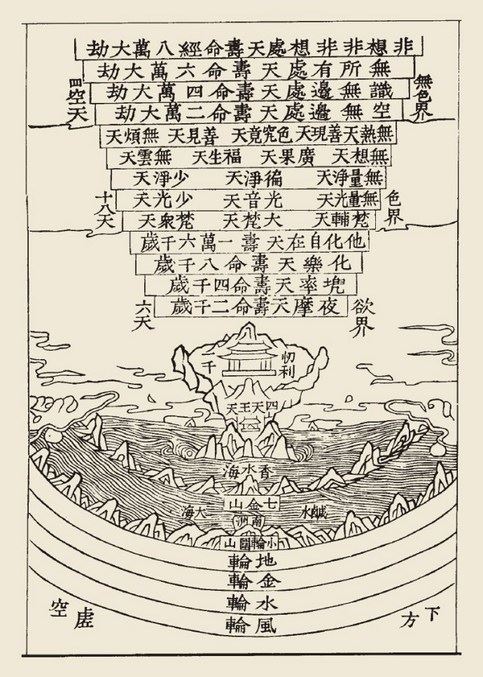 非想非非想處天壽命經八萬大劫
無所有處天壽命六萬大劫
識無邊處天壽命四萬大劫
空無邊處天壽命二萬大劫
無色界
四空天
無熱天 善現天 色究竟天 善見天 無煩天
無想天 廣果天 福生天 無雲天
無量淨天 徧淨天 少淨天
無量光天 光音天 少光天
梵輔天 大梵天 梵眾天
色界
十八天
他化自在天壽一萬六千歲
化樂天壽命八千歲
兜率天壽命四千歲
夜摩天壽命二千歲
欲界
六天
忉利
千
四天王天
香水海
七金山
鹹水
大海
南洲
小輪圍山
地輪
金輪
水輪
風輪
下方
虛空